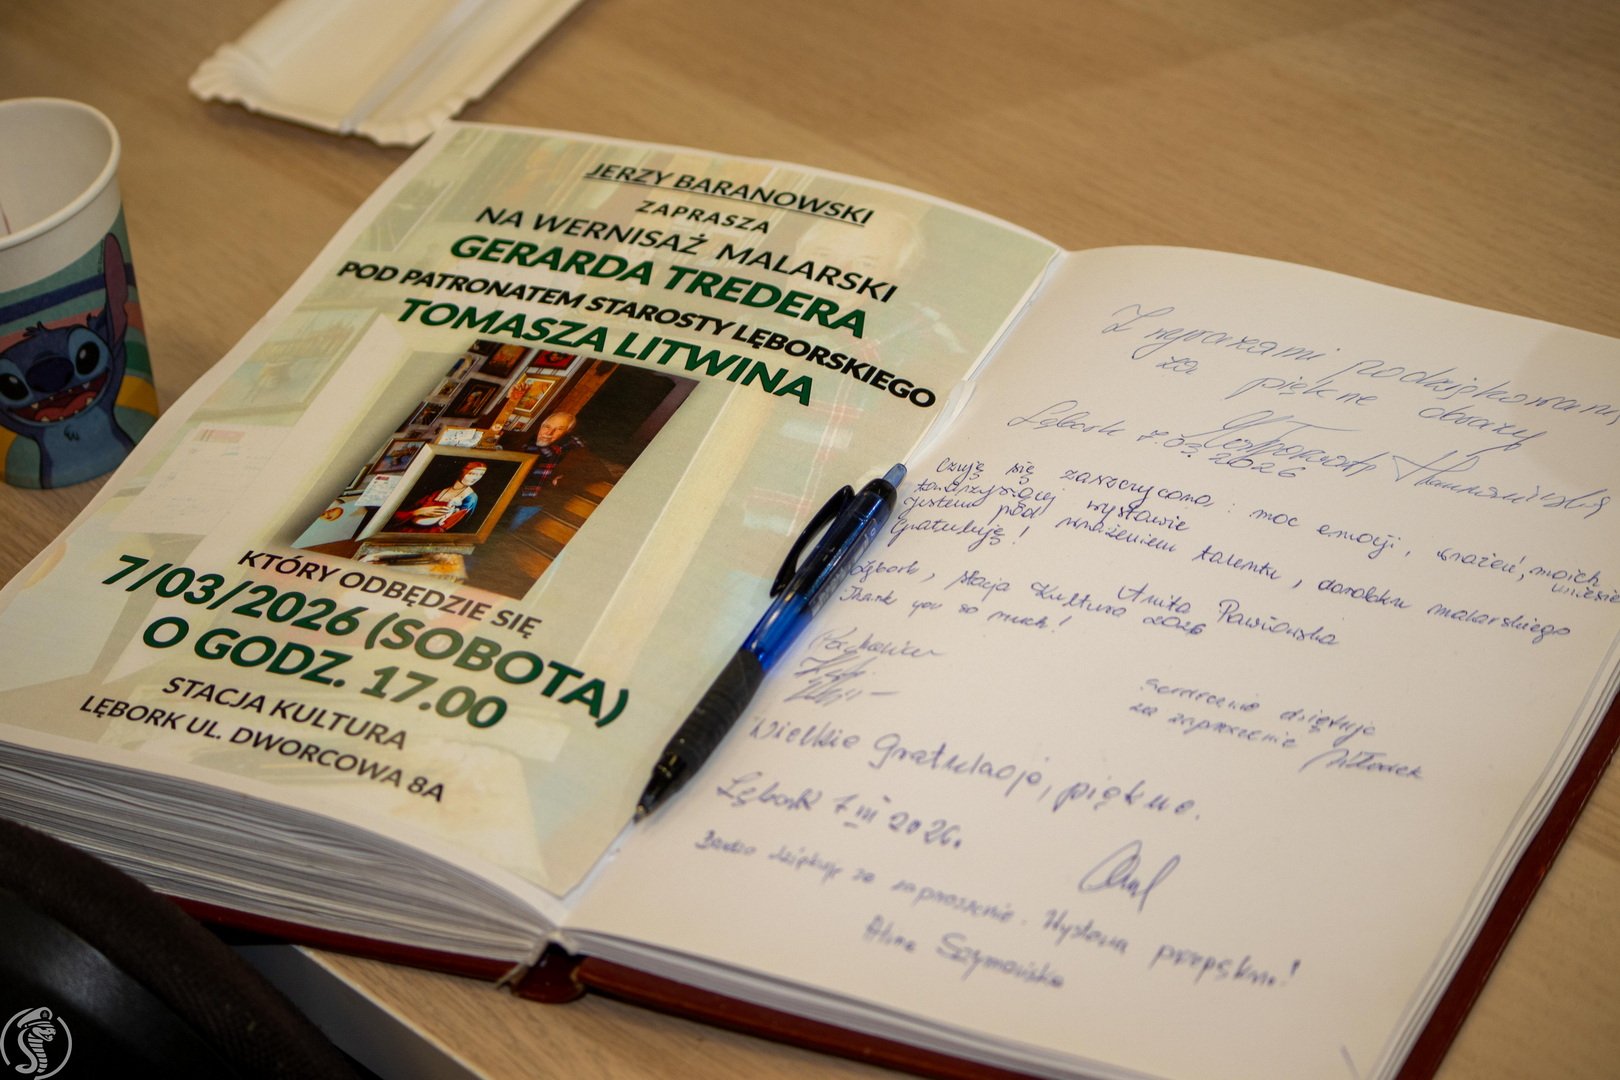 JERZY BARANOWSKI
ZAPRASZA
NA WERNISAŻ MALARSKI
GERARDA TREDERA
POD PATRONATEM STAROSTY LĘBORSKIEGO
TOMASZA LITWINA
KTÓRY ODBĘDZIE SIĘ
7/03/2026 (SOBOTA)
O GODZ. 17.00
STACJA KULTURA
LĘBORK UL. DWORCOWA 8A
Z wyrazami podziękowania,
za piękne obrazy
Lębork 7.03.2026
Czuję się zaszczycona: moc emocji, wrażeń, moich
towarzyszącej wystawie
jestem pod wrażeniem talentu, dorobku malarskiego
Gratuluję!
Anita Pawłowska
Lębork, stacja Kultura 2026
Thank you so much!
Serdecznie dziękuję
za zaproszenie
Wielkie gratulacje, piękne.
Lębork 7 III 2026.
Bardzo dziękuję za zaproszenie. Wystawa przepiękna!
Alina Szymańska